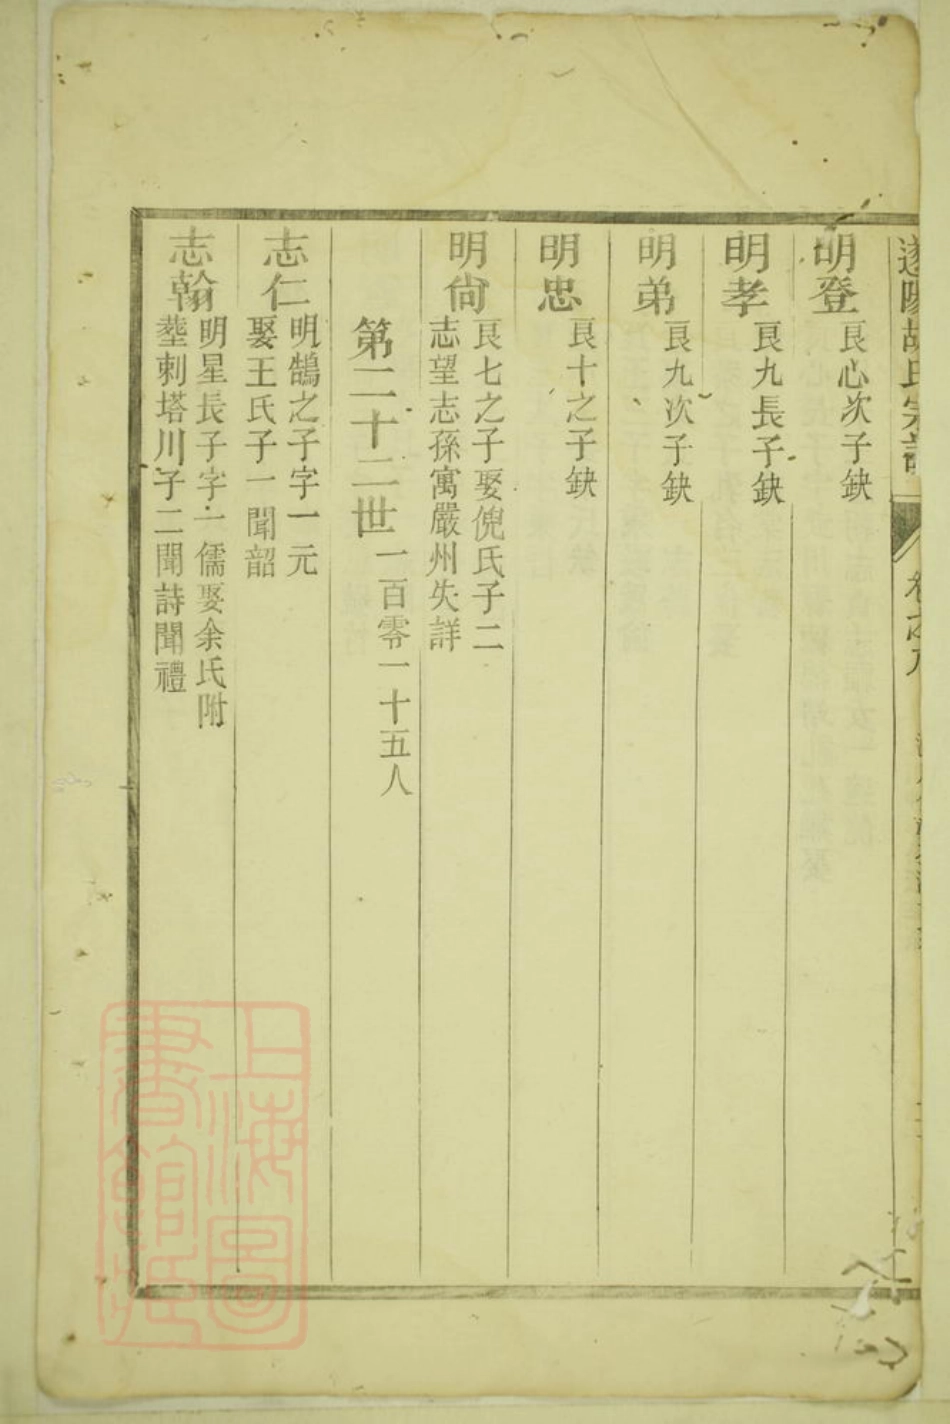 遂陽胡氏宗譜
卷之八
明登
艮心次子缺
明孝
艮九長子缺
明弟
艮九次子缺
明忠
艮十之子缺
明尙
艮七之子娶倪氏子二
志望志孫寓嚴州失詳
第二十二世
一百零一十五人
志仁
明鵠之子字一元
娶王氏子一聞韶
志翰
明星長子字一儒娶余氏附
塟刺塔川子二聞詩聞禮
上海圖
書館藏